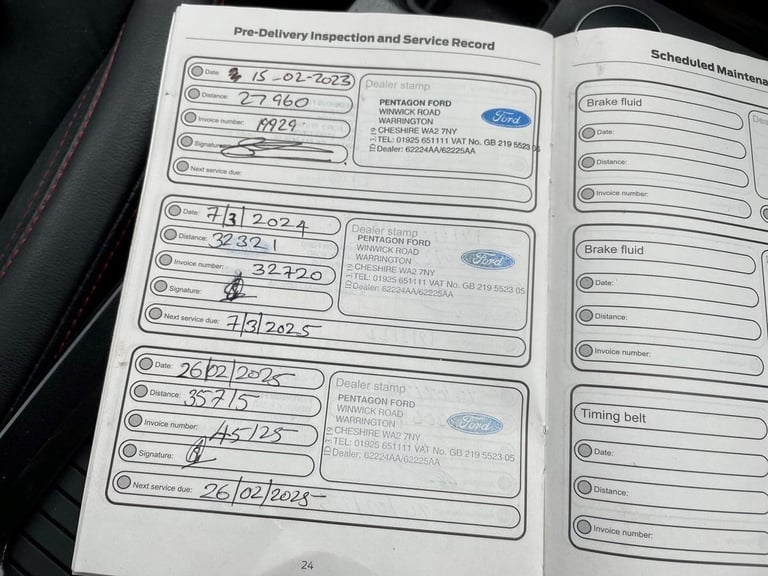 Pre-Delivery Inspection and Service Record
Date: 15-02-2023
Distance: 27960
Invoice number: 19929
Signature:
Next service due:
Dealer stamp
PENTAGON FORD
WINWICK ROAD
WARRINGTON
CHESHIRE WA2 7NY
TEL: 01925 651111 VAT No. GB 219 5523 05
Dealer: 62224AA/62225AA
Ford
Date: 7/3/2024
Distance: 32321
Invoice number: 32720
Signature:
Next service due: 7/3/2025
Dealer stamp
PENTAGON FORD
WINWICK ROAD
WARRINGTON
CHESHIRE WA2 7NY
TEL: 01925 651111 VAT No. GB 219 5523 05
Dealer: 62224AA/62225AA
Ford
Date: 26/02/2025
Distance: 35715
Invoice number: 45125
Signature:
Next service due: 26/02/2025
Dealer stamp
PENTAGON FORD
WINWICK ROAD
WARRINGTON
CHESHIRE WA2 7NY
TEL: 01925 651111 VAT No. GB 219 5523 05
Dealer: 62224AA/62225AA
Ford
24
Scheduled Maintena
Brake fluid
Date:
Distance:
Invoice number:
Dea
Brake fluid
Date:
Distance:
Invoice number:
Timing belt
Date:
Distance:
Invoice number: